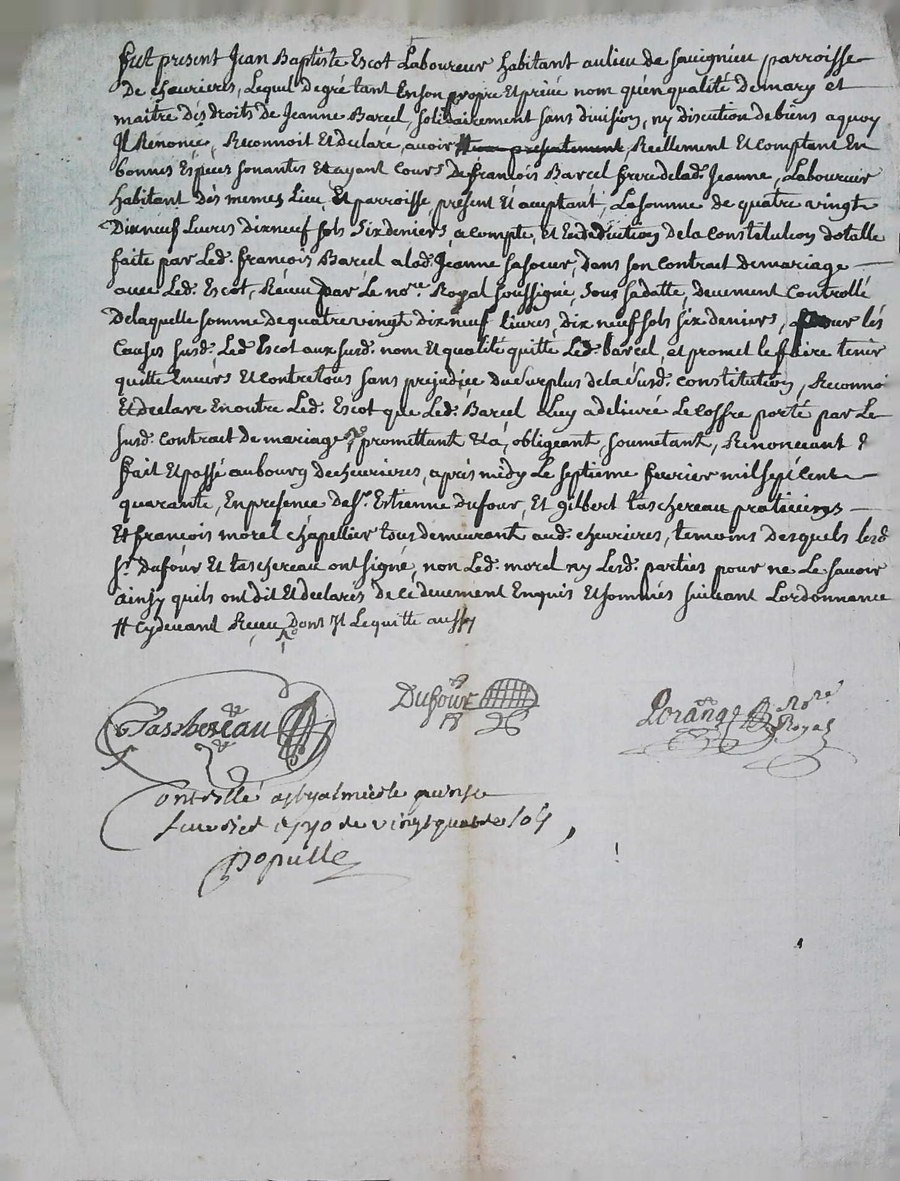 Fut présent Jean Baptiste Escot Laboureur habitant au lieu de Savignieu parroisse
De cheurieres, Lequel de gré tant En son propre Et privé nom qu'en qualité De mary et
maitre des droits de Jeanne Barcel, solidairement sans division, ny discution de biens a quoy
Il Renonce, Reconnoit Et declare, avoir # Reellement Et comptant En
bonnes Espèces sonantes Et ayant Cours De françois Barcel frere de lad. Jeanne, Laboureur
habitant des memes Lieu, Et parroisse, présent Et aceptant, La somme de quatre vingt
Dix neuf Livres dix neuf sols six deniers, a compte, et En deduction De la Constitution dotalle
faite par Led. françois Barcel a lad. Jeanne sa soeur, Dans son Contract De mariage
avec Led. Escot, Receu par Le no.re Royal soussigné, sous sa datte, devement Controllé
De laquelle somme de quatre vingt dix neuf Livres, dix neuf sols six deniers, pour les
Causes susd. Led. Escot aux susd. nom Et qualité quitte Led. barcel, et promet le faire tenir
quitte Envers Et contre tous sans prejudice du surplus de la susd. constitution, Reconnoi
Et declare En outre Led. Escot que Led. Barcel Luy a delivré Le Coffre porté par Le
susd. Contract de mariage promettant &a, obligeant, soumetant, Renonceant &
fait Et passé au bourg de cheurieres, après midy Le septieme fevrier mil sept Cent
quarante, En presence de s.r Estienne Dufour, Et gilbert taschereau praticiens
Et françois morel chapellier tous demeurant aud. cheurieres, temoins desquels lesd
s.rs Dufour Et taschereau ont signé, non Led. morel ny Lesd. parties pour ne Le savoir
ainsy quils ont dit Et declarés De ce devement Enquis Et sommés suivant Lordonnance
# Cy devant Receu Dont Il Le quitte aussy
Taschereau
Dufour
Lorange No.re Royal
Controllé a
1740 de vingt quatre sols
Populle